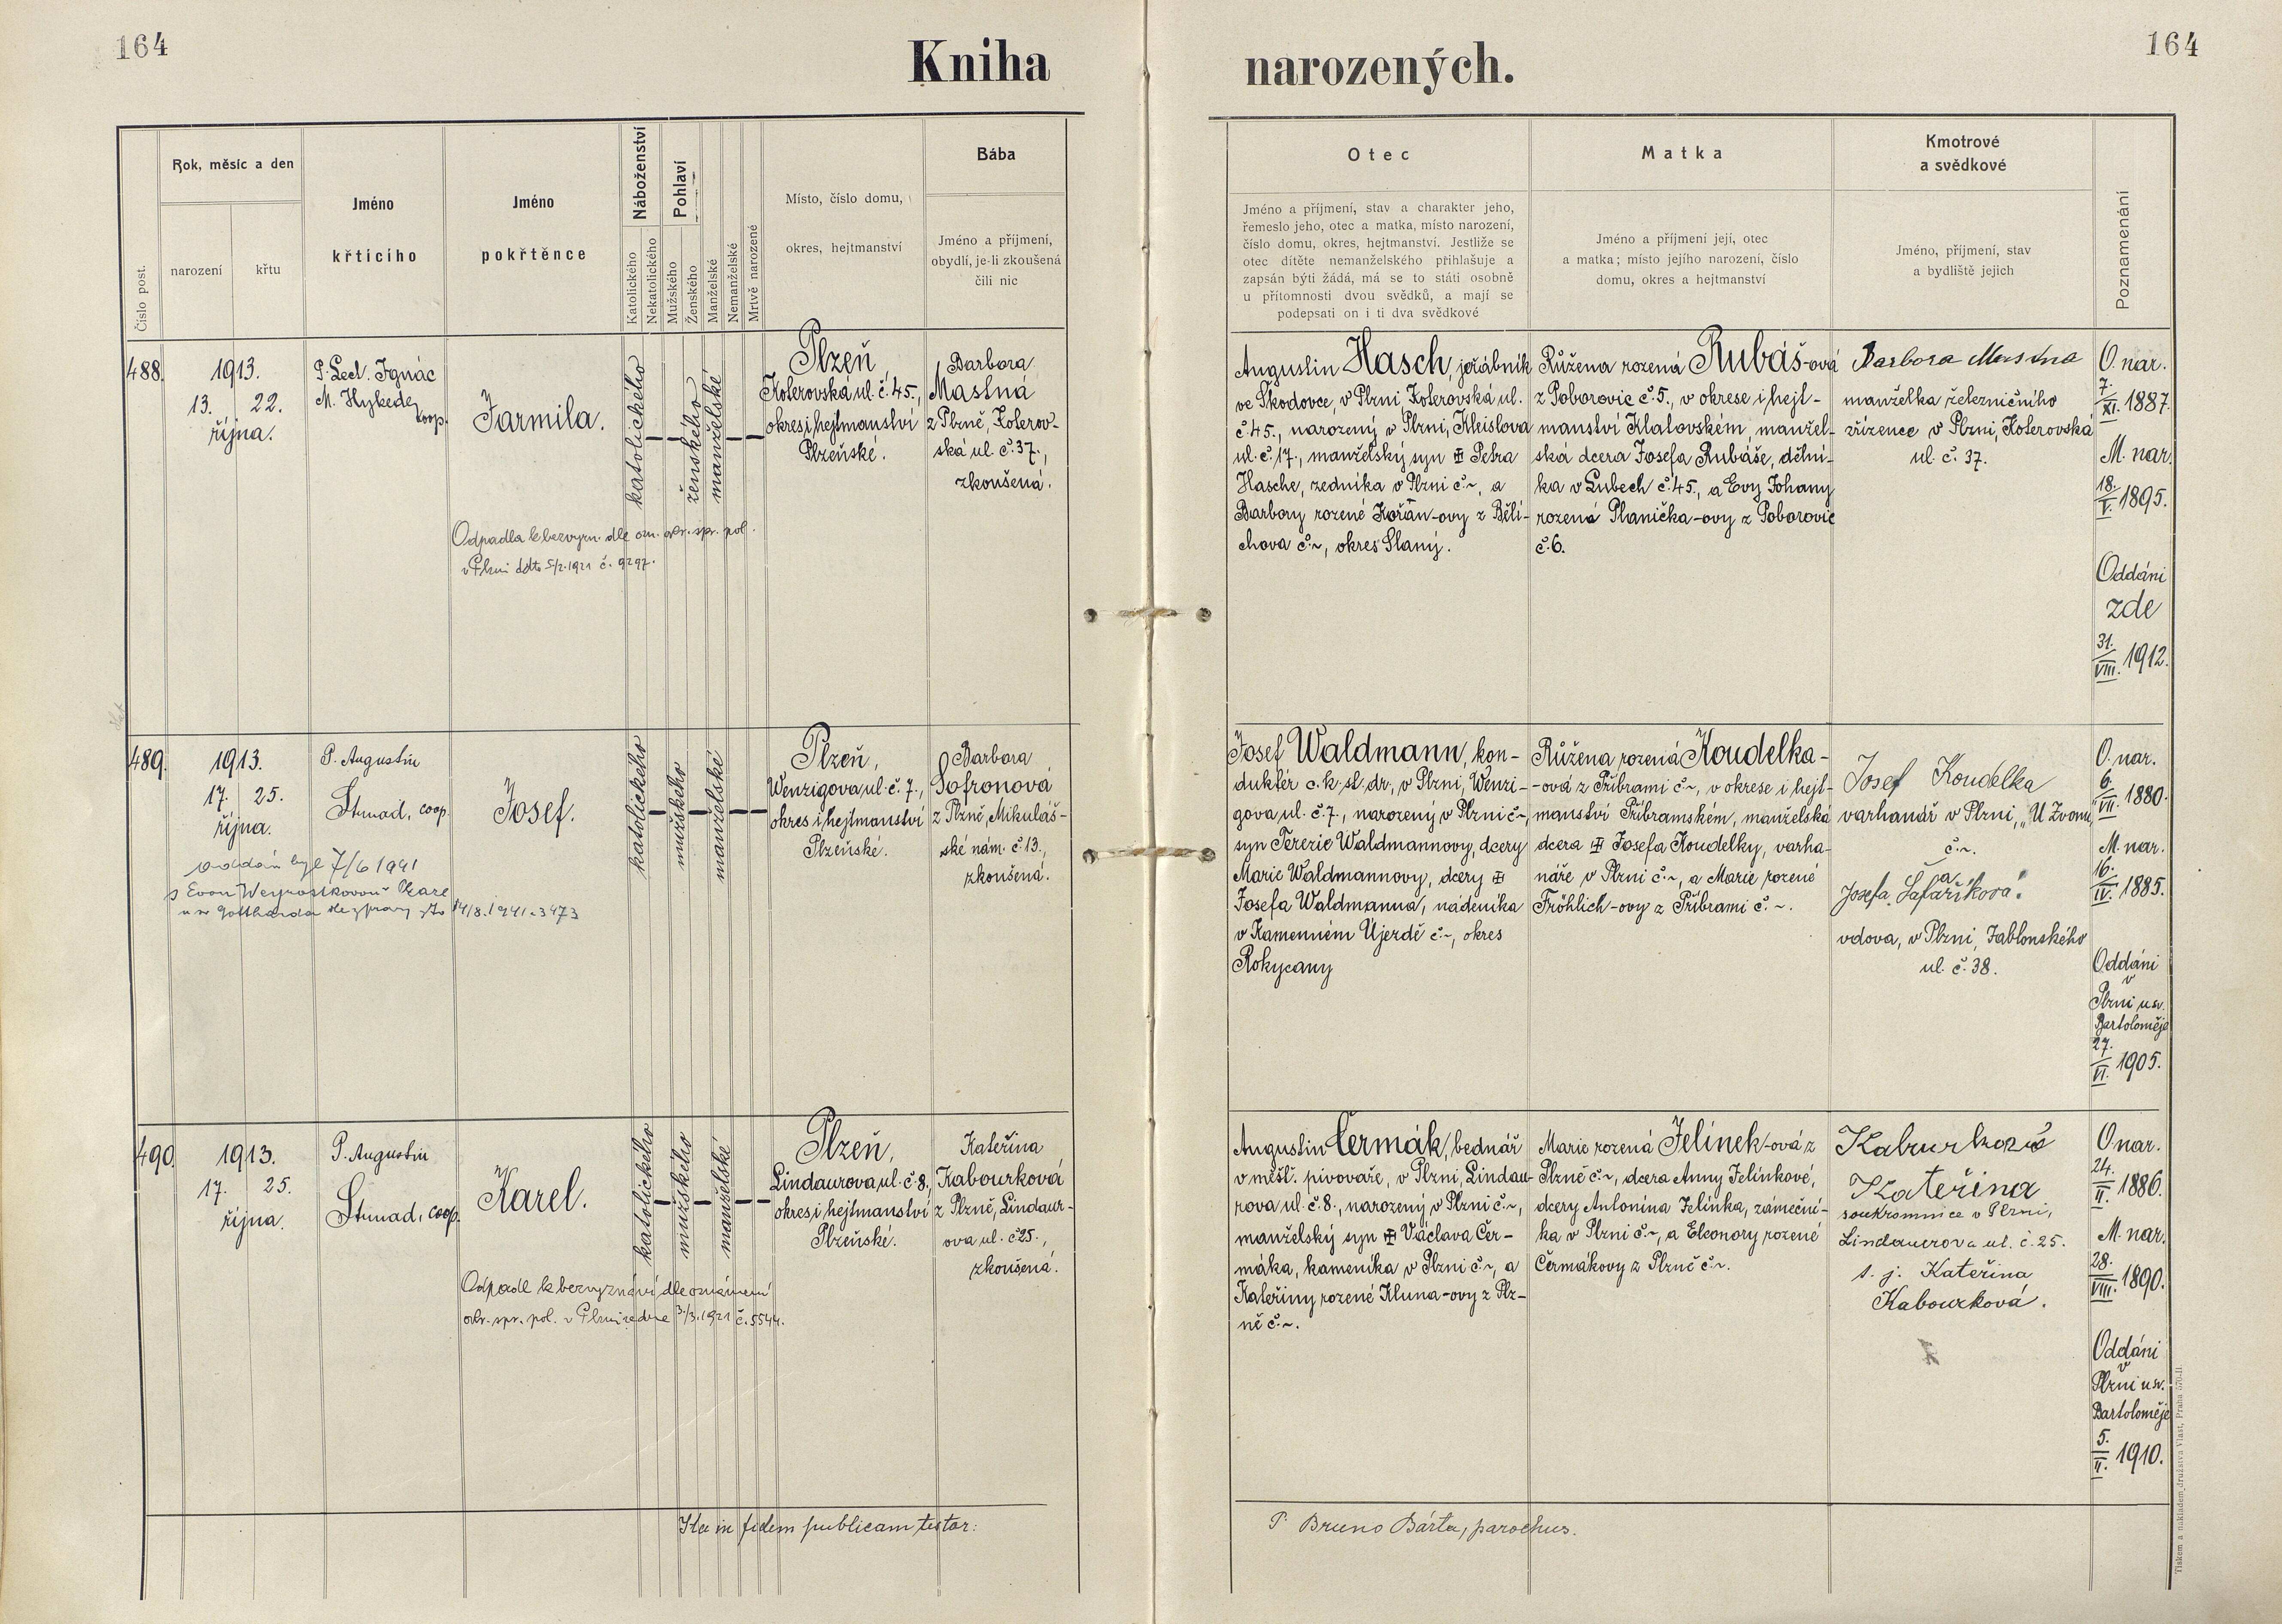 164
Kniha
narozených.
164
Číslo post.
Rok, měsíc a den
narození
křtu
Jméno
křtícího
Jméno
pokřtěnce
Náboženství
Katolického
Nekatolického
Pohlaví
Mužského
Ženského
Manželské
Nemanželské
Mrtvě narozené
Místo, číslo domu,
okres, hejtmanství
Bába
Jméno a příjmení,
obydlí, je-li zkoušená
čili nic
Otec
Jméno a příjmení, stav a charakter jeho,
řemeslo jeho, otec a matka, místo narození,
číslo domu, okres, hejtmanství. Jestliže se
otec dítěte nemanželského přihlašuje a
zapsán býti žádá, má se to státi osobně
u přítomnosti dvou svědků, a mají se
podepsati on i ti dva svědkové
Matka
Jméno a příjmení její, otec
a matka; místo jejího narození, číslo
domu, okres a hejtmanství
Kmotrové
a svědkové
Jméno, příjmení, stav
a bydliště jejich
Poznamenání
488.
1913.
13. 22.
října.
P. Lect. Ignác
M. Hykede
coop.
Jarmila.
katolického
ženského
manželské
Plzeň,
Koterovská ul. č. 45.,
okres i hejtmanství
Plzeňské.
Barbora
Mastná
z Plzně, Koterov-
ská ul. č. 37.,
zkoušená.
Odpadla k bezvyzn. dle ozn. okr. spr. pol.
v Plzni ddto 5/2. 1921 č. 9297.
Augustin Hasch, jeřábník
ve Škodovce, v Plzni Koterovská ul.
č. 45., narozený v Plzni, Kleislova
ul. č. 17., manželský syn Petra
Hasche, zedníka v Plzni č. ~, a
Barbory rozené Kořán-ovy z Běli-
chova č. ~, okres Slaný.
Růžena rozená Rubáš-ová
z Poborovic č. 5., v okrese i hejt-
manství Klatovském, manžel-
ská dcera Josefa Rubáše, dělní-
ka v Lubech č. 45., a Evy Johany
rozená Planička-ovy z Poborovic
č. 6.
Barbora Mastna
manželka železničního
zřízence v Plzni, Koterovská
ul. č. 37.
O. nar.
7./XI. 1887.
M. nar.
18./V. 1895.
Oddáni
zde
31./VIII. 1912.
489.
1913.
17. 25.
října.
P. Augustin
Strnad, coop.
Josef.
katolického
mužského
manželské
Plzeň,
Wenzigova ul. č. 7.,
okres i hejtmanství
Plzeňské.
Barbora
Sofronová
z Plzně, Mikuláš-
ské nám. č. 13.,
zkoušená.
oddán byl 7/6 1941
s Evou
u sv. Gottharda dle zprávy zto 14/8. 1941. 3473
Josef Waldmann, kon-
duktér c. k. st. dr., v Plzni, Wenzi-
gova ul. č. 7., narozený v Plzni č. ~,
syn Terezie Waldmannovy, dcery
Marie Waldmannovy, dcery
Josefa Waldmanna, nádeníka
v Kamenném Újezdě č. ~, okres
Rokycany
Růžena rozená Koudelka-
-ová z Příbrami č. ~, v okrese i hejt-
manství Příbramském, manželská
dcera Josefa Koudelky, varha-
náře v Plzni č. ~, a Marie rozené
Fröhlich-ovy z Příbrami č. ~.
Josef Koudelka
varhanář v Plzni, „U Zvonu"
č. ~.
a
Josefa Šafaříková.
vdova, v Plzni, Jablonského
ul. č. 38.
O. nar.
6./VII. 1880.
M. nar.
16./IV. 1885.
Oddáni
v
Plzni u sv.
Bartoloměje
27./VI. 1905.
490.
1913.
17. 25.
října.
P. Augustin
Strnad, coop.
Karel.
katolického
mužského
manželské
Plzeň,
Lindaurova ul. č. 8.,
okres i hejtmanství
Plzeňské.
Kateřina
Kabourková
z Plzně, Lindaur-
ova ul. č. 25.,
zkoušená.
Odpadl k bezvyznání dle oznámení
okr. spr. pol. v Plzni ze dne 3./3. 1921 č. 5544.
Augustin Čermák, bednář
v měšť. pivovaře, v Plzni, Lindau-
rova ul. č. 8., narozený v Plzni č. ~,
manželský syn Václava Čer-
máka, kameníka v Plzni č. ~, a
Kateřiny rozené Kluna-ovy z Plz-
ně č. ~.
Marie rozená Jelínek-ová z
Plzně č. ~, dcera Anny Jelínkové,
dcery Antonína Jelínka, zámeční-
ka v Plzni č. ~, a Eleonory rozené
Čermákovy z Plzně č. ~.
Kaburková
Kateřina
soukromnice v Plzni,
Lindauerova ul. č. 25.
t. j. Kateřina
Kabourková.
O. nar.
24./II. 1886.
M. nar.
28./VIII. 1890.
Oddáni
v
Plzni u sv.
Bartoloměje
5./II. 1910.
Ita in fidem publicam testor:
P. Bruno Bárta, parochus.
Tiskem a nákladem družstva Vlast, Praha 570-II.